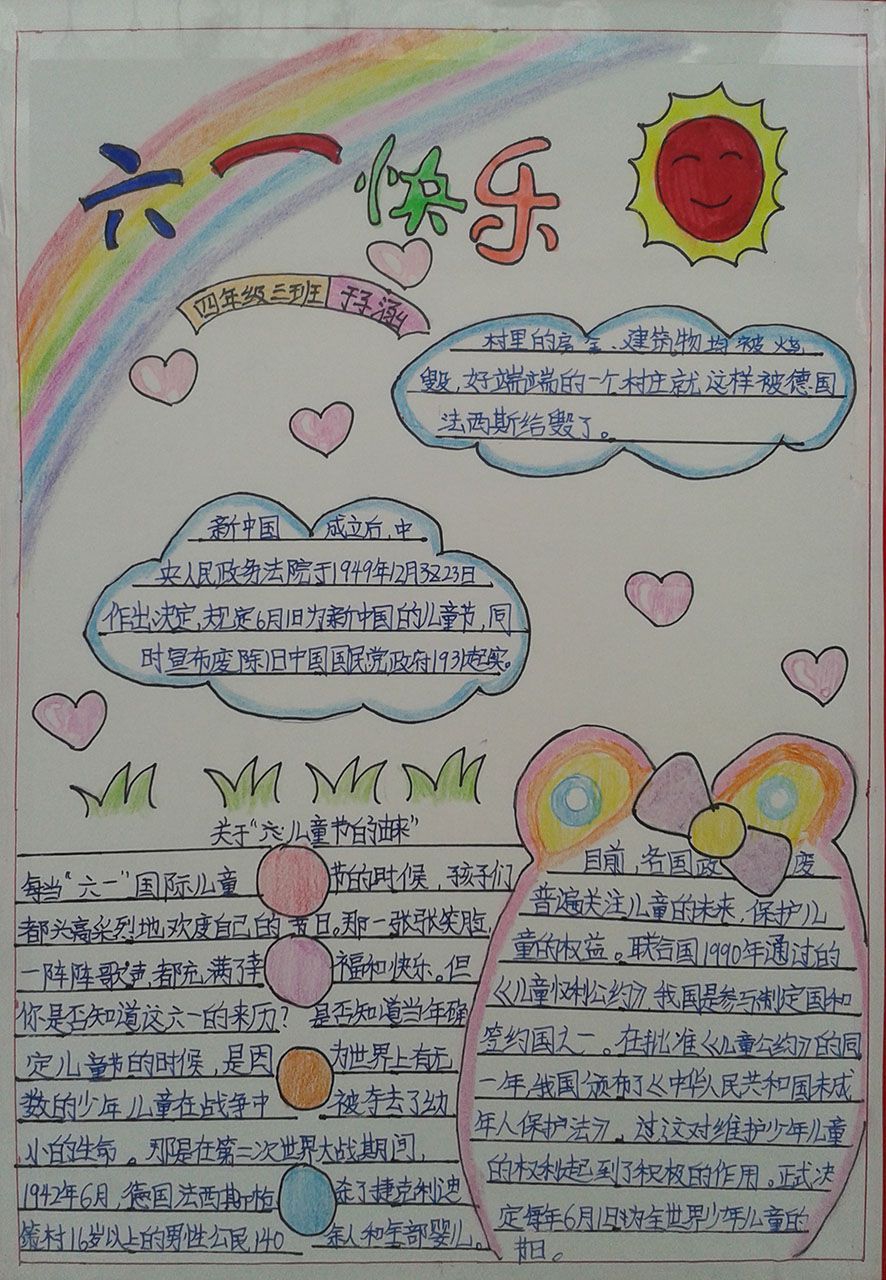 六一快乐
四年级三班 于子涵
村里的房舍、建筑物均被烧
毁,好端端的一个村庄就这样被德国
法西斯给毁了。
新中国成立后,中
央人民政务法院于1949年12月3223日
作出决定,规定6月1日为新中国的儿童节,同
时宣布废除旧中国国民党政府1931起实。
关于“六一儿童节的由来”
每当“六一”国际儿童节的时候,孩子们
都头高采烈地欢度自己的节日。那一张张笑脸,
一阵阵歌声,都充满了幸福和快乐。但
你是否知道这六一的来历?是否知道当年确
定儿童节的时候,是因为世界上有无
数的少年儿童在战争中被夺去了幼
小的生命。那是在第二次世界大战期间,
1942年6月,德国法西斯枪杀了捷克利迪
策村16岁以上的男性公民140余人和全部婴儿。
目前,各国政废
普遍关注儿童的未来,保护儿
童的权益。联合国1990年通过的
《儿童权利公约》,我国是参与制定国和
签约国之一。在批准《儿童公约》的同
一年,我国颁布了《中华人民共和国未成
年人保护法》。过这对维护少年儿童
的权利起到了积极的作用。正式决
定每年6月1日为全世界少年儿童的
节日。